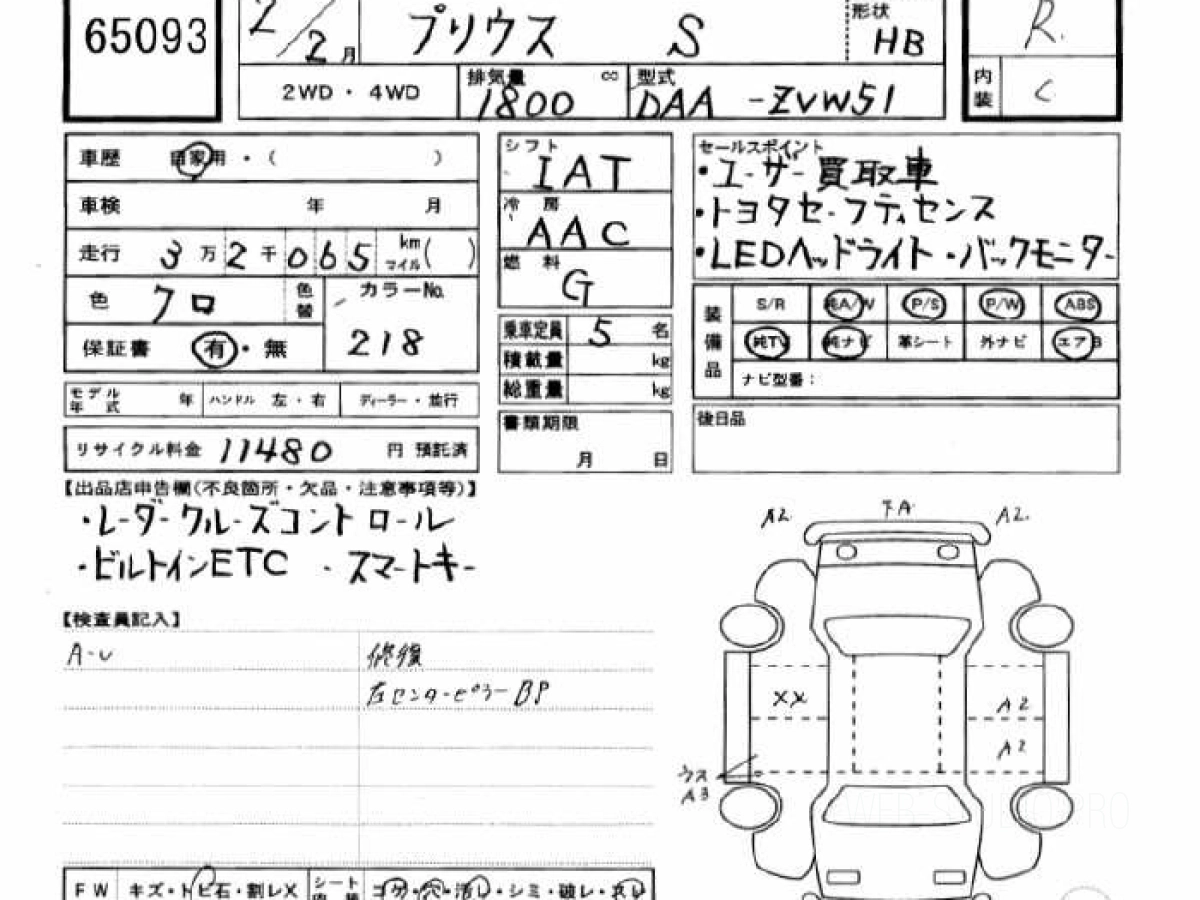 65093
2/2月 プリウス S 形状 HB
R.
2WD・4WD 排気量 1800 cc 型式 DAA-ZVW51
内装 C
車歴 自家用・( )
車検 年 月
走行 3万2千065 km マイル( )
色 クロ 色替 カラーNo. 218
保証書 有・無
モデル年式 年 ハンドル 左・右 ディーラー・並行
リサイクル料金 11480 円 預託済
シフト IAT
冷房 AAC
燃料 G
乗車定員 5 名
積載量 kg
総重量 kg
書類期限
月 日
セールスポイント
・ユーザー買取車
・トヨタセーフティセンス
・LEDヘッドライト・バックモニター
装備品 S/R 純A/W P/S P/W ABS
純TV 純ナビ 革シート 外ナビ エアB
ナビ型番:
後日品
【出品店申告欄(不良箇所・欠品・注意事項等)】
・レーダークルーズコントロール
・ビルトインETC ・スマートキー
【検査員記入】
A-U 修復
左センターピラーBP
A2 FA A2
XX A2
A2
ウス
A3
FW キズ・トビ石・割レX シート内装 コゲ・穴・汚レ・シミ・破レ・スレ